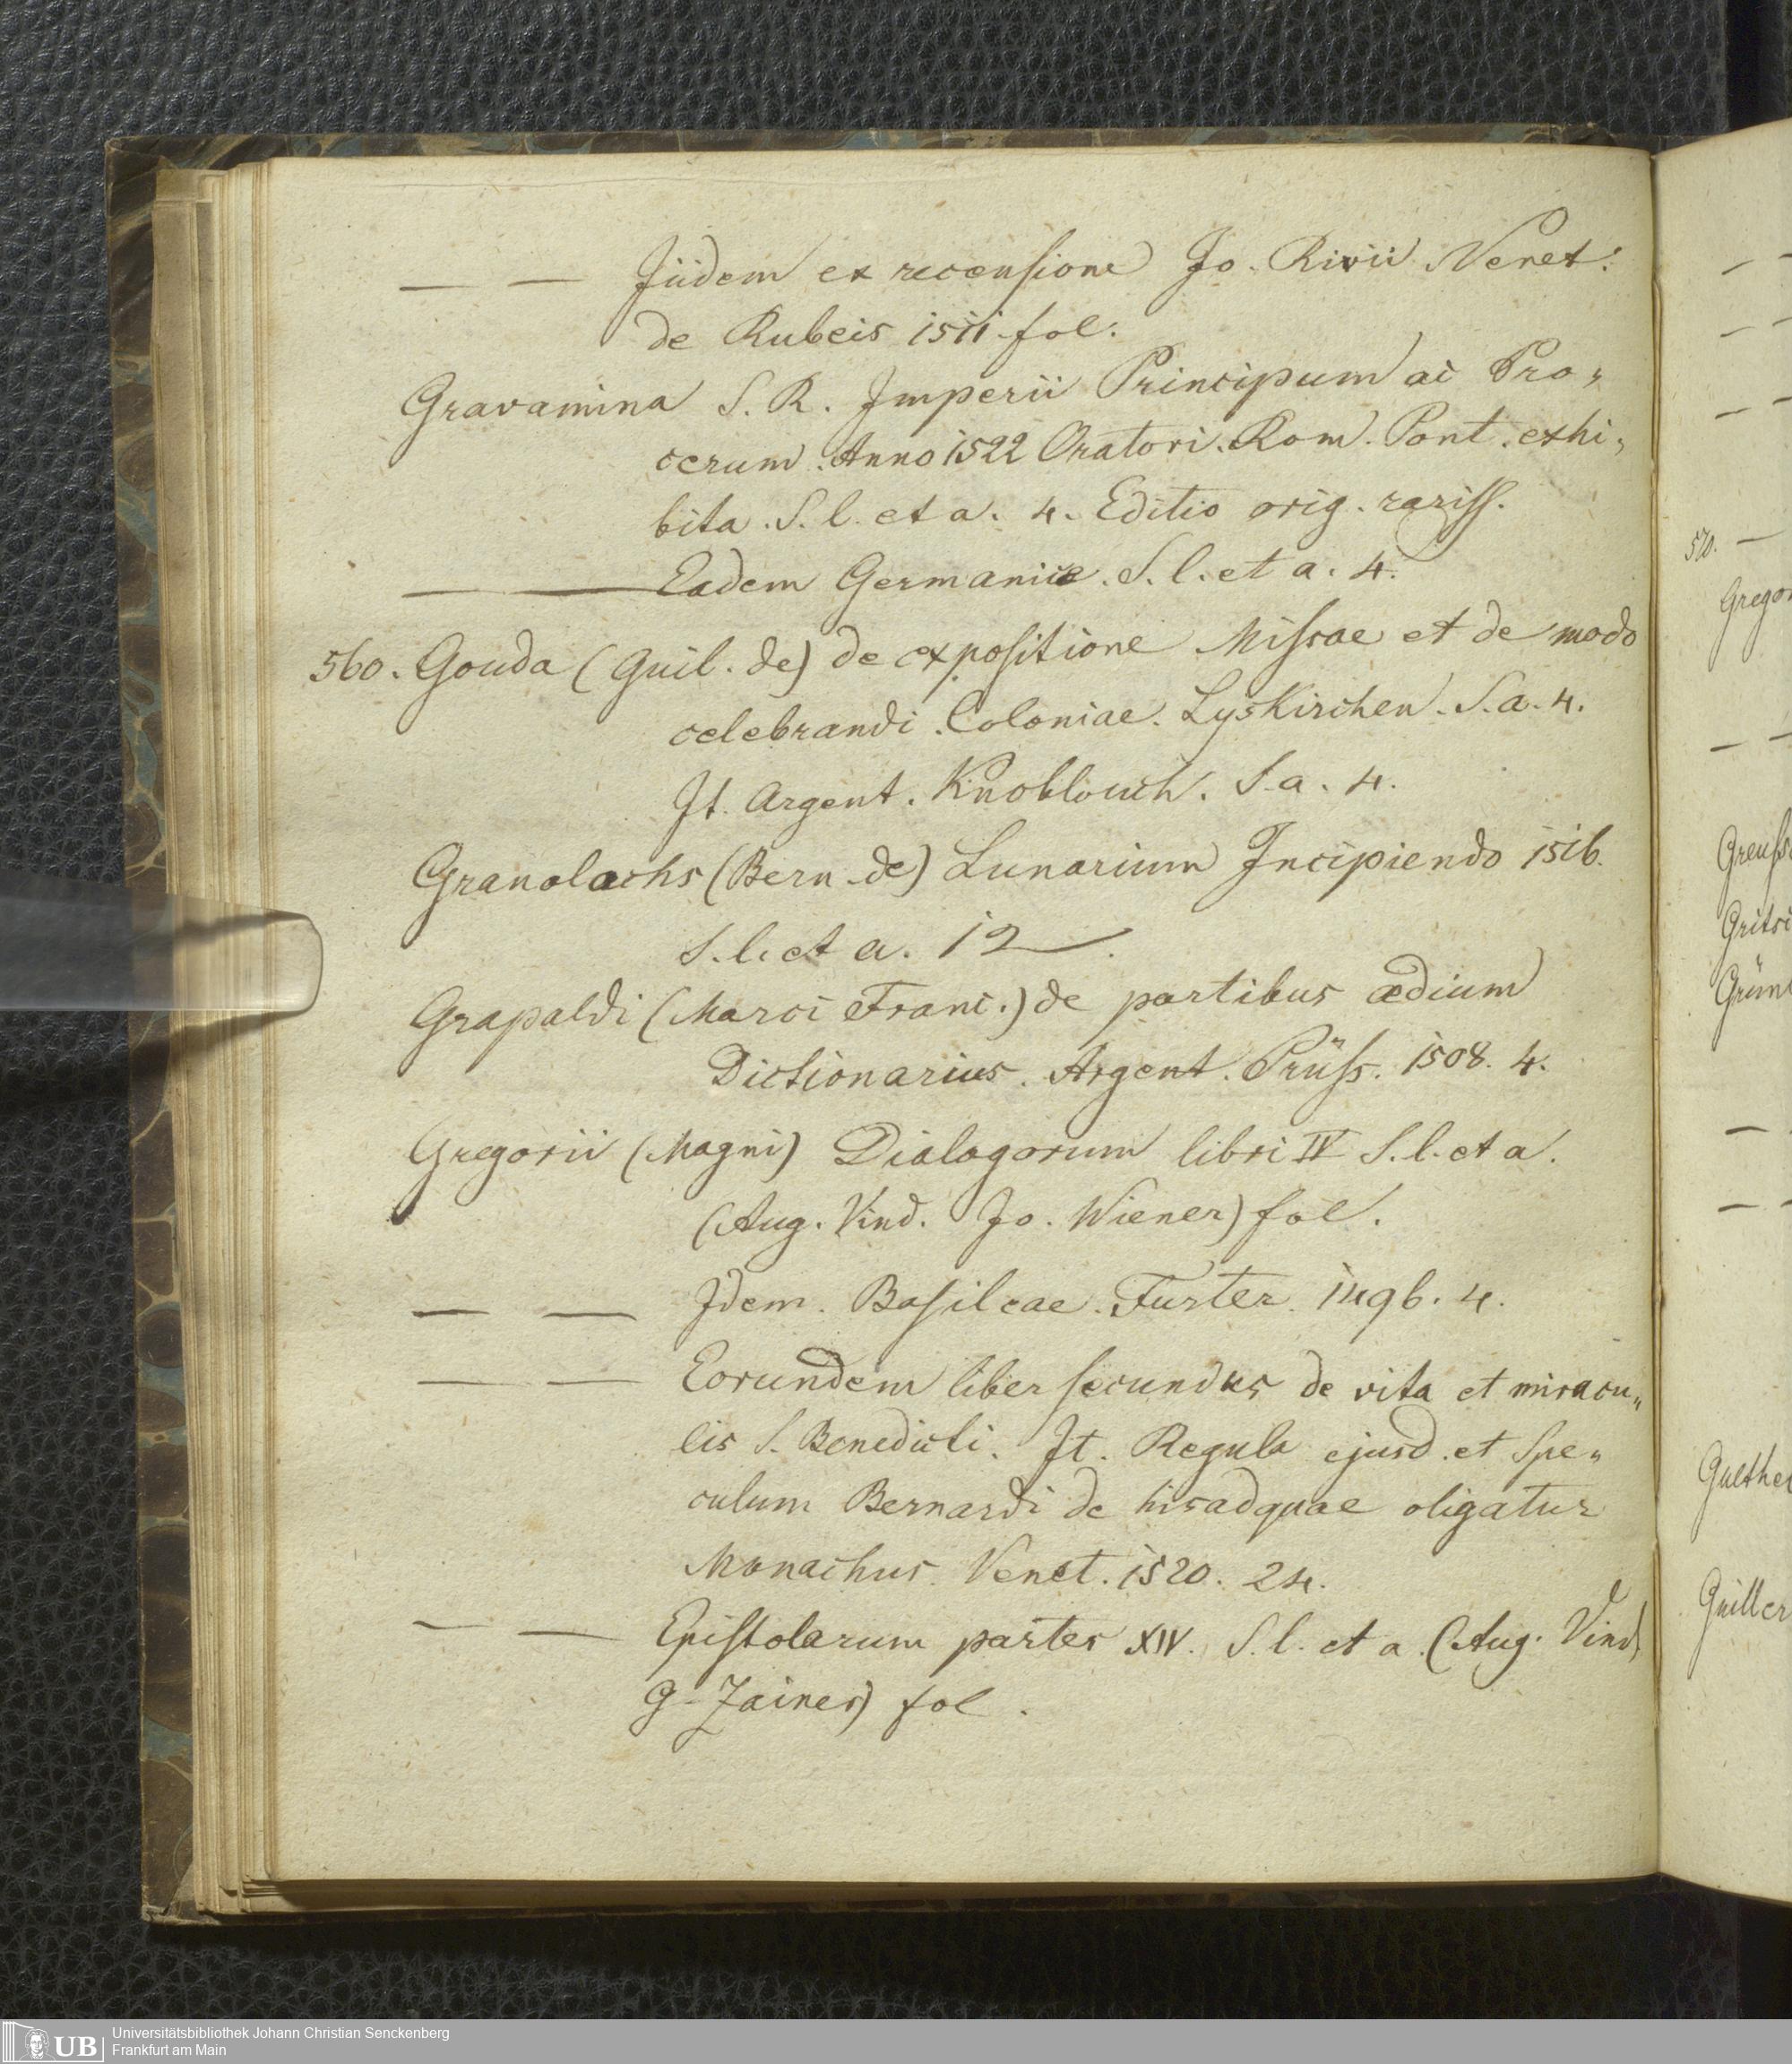 — — Jiidem ex recensione Jo. Rivii Venet.
de Rubeis 1511 fol.
Gravamina S. R. Imperii Principum ac Pro„
cerum. Anno 1522 Oratori. Rom. Pont. exhi„
bita. S. l. et a. 4. Editio orig. rariss.
— — Eadem Germanice. S. l. et a. 4.
560. Gouda (Guil. de) de expositione Missae et de modo
celebrandi. Coloniae. Lyskirchen. S. a. 4.
It. Argent. Knoblouch. S. a. 4.
Granolachs (Bern. de) Lunarium Incipiendo 1516.
S. l. et a. 12.
Grapaldi (Marci Franc.) de partibus ædium
Dictionarius. Argent. Prüss. 1508. 4.
Gregorii (Magni) Dialogorum libri IV S. l. et a.
(Aug. Vind. Jo. Wiener) fol.
— — Idem. Basileae. Furter. 1496. 4.
— — Eorundem liber secundus de vita et miracu„
lis S. Benedicti. It. Regula ejusd. et Spe„
culum Bernardi de his ad quae oligatur
Monachus. Venet. 1520. 24.
— — Epistolarum partes XIV. S. l. et a. (Aug. Vind.
G. Zainer) fol.
570. —
Gregor
Greuss
Gritsc
Grün
Guiller
UB Universitätsbibliothek Johann Christian Senckenberg
Frankfurt am Main